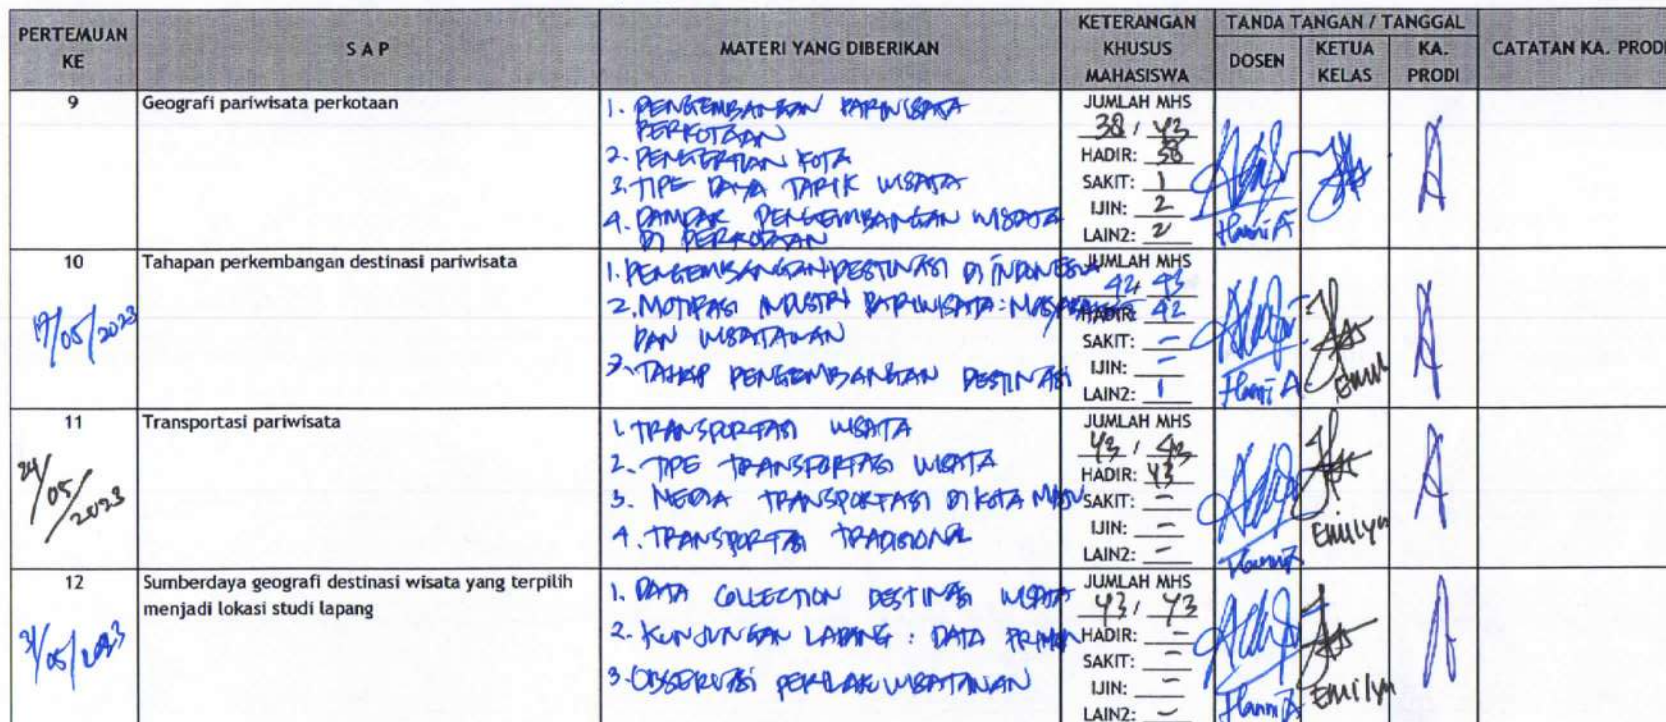 PERTEMUAN KE
S A P
MATERI YANG DIBERIKAN
KETERANGAN KHUSUS MAHASISWA
TANDA TANGAN / TANGGAL
DOSEN
KETUA KELAS
KA. PRODI
CATATAN KA. PRODI
9
Geografi pariwisata perkotaan
1. PENGEMBANGAN PARIWISATA
PERKOTAAN
2. PENGERTIAN KOTA
3. TIPE DAYA TARIK WISATA
4. DAMPAK PENGEMBANGAN WISATA
DI PERKOTAAN
JUMLAH MHS
38 / 43
HADIR: 38
SAKIT: 1
IJIN: 2
LAIN2: 2
Hanni A
10
17/05/2023
Tahapan perkembangan destinasi pariwisata
1. PENGEMBANGAN DESTINASI DI INDONESIA
2. MOTIVASI INDUSTRI PARIWISATA: MASYARAKAT
DAN WISATAWAN
3. TAHAP PENGEMBANGAN DESTINASI
JUMLAH MHS
42 / 43
HADIR: 42
SAKIT: -
IJIN: -
LAIN2: 1
Hanni A
11
24/05/2023
Transportasi pariwisata
1. TRANSPORTASI WISATA
2. TIPE TRANSPORTASI WISATA
3. MEDIA TRANSPORTASI DI KOTA
4. TRANSPORTASI TRADISIONAL
JUMLAH MHS
43 / 43
HADIR: 43
SAKIT: -
IJIN: -
LAIN2: -
Emilya
12
31/05/2023
Sumberdaya geografi destinasi wisata yang terpilih
menjadi lokasi studi lapang
1. DATA COLLECTION DESTINASI WISATA
2. KUNJUNGAN LAPANG : DATA PRIMER
3. OBSERVASI PERILAKU WISATAWAN
JUMLAH MHS
43 / 43
HADIR: -
SAKIT: -
IJIN: -
LAIN2: -
Hanni A
Emilya